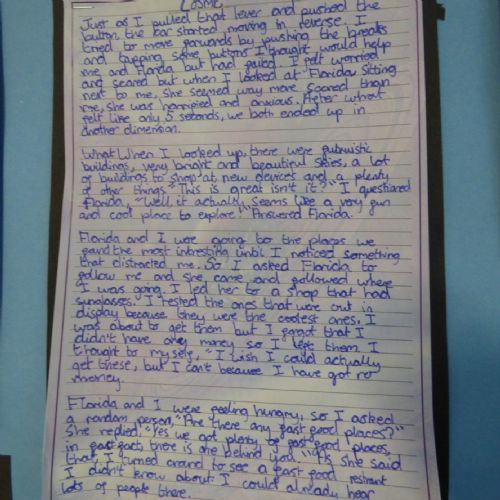 Cosmic
Just as I pulled that lever and pushed the
button, the bar started moving in reverse. I
tried to move forwards by pushing the breaks
and tapping some buttons I thought would help
me and Florida but had failed. I felt worried
and scared but when I looked at Florida sitting
next to me, she seemed way more scared than
me, she was horrified and anxious. After what
felt like only 5 seconds, we both ended up in
another dimension.
What When I looked up, there were futuristic
buildings, very bright and beautiful skies, a lot
of buildings to shop at new devices and a plenty
of other things. "This is great isn't it?" I questioned
Florida, "Well, it actually seems like a very fun
and cool place to explore!" Answered Florida.
Florida and I were going to the places we
found the most intresting until I noticed something
that distracted me. So I asked Florida to
follow me and she came and followed where
I was going. I led her to a shop that had
sunglasses. I tested the ones that were out in
display because they were the coolest ones. I
was about to get them but I forgot that I
didn't have any money so I left them. I
thought to myself, "I wish I could actually
get these, but I can't because I have got no
money.
Florida and I were feeling hungry, so I asked
a random person, "Are there any fast food places?"
She replied, "Yes we got plenty of fast food places,
in fact, there is one behind you." As she said
that I turned around to see a fast food restrant
I didn't know about. I could already hear
lots of people there.